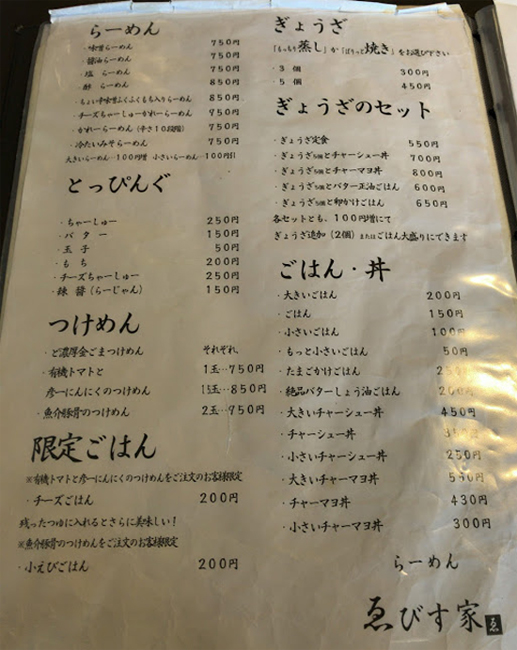 らーめん
・味噌らーめん 750円
・醤油らーめん 750円
・塩 らーめん 750円
・酢 らーめん 850円
・ちょい辛味噌ふくふくもち入りらーめん 850円
・チーズちゃーしゅーかれーらーめん 950円
・かれーらーめん(辛さ10段階) 750円
・冷たいみそらーめん 750円
大きいらーめん…100円増 小さいらーめん…100円引
とっぴんぐ
・ちゃーしゅー 250円
・バター 150円
・玉子 50円
・もち 200円
・チーズちゃーしゅー 250円
・辣醤(らーじゃん) 150円
つけめん
・ど濃厚金ごまつけめん それぞれ、
・有機トマトと 1玉…750円
彦一にんにくのつけめん 1.5玉…850円
・魚介豚骨のつけめん 2玉…950円
限定ごはん
※有機トマトと彦一にんにくのつけめんをご注文のお客様限定
・チーズごはん 200円
残ったつゆに入れるとさらに美味しい!
※魚介豚骨のつけめんをご注文のお客様限定
・小えびごはん 200円
ぎょうざ
「もっちり蒸し」か「ぱりっと焼き」をお選び下さい
・3個 300円
・5個 450円
ぎょうざのセット
・ぎょうざ定食 550円
・ぎょうざ5個とチャーシュー丼 700円
・ぎょうざ5個とチャーマヨ丼 800円
・ぎょうざ5個とバター正油ごはん 600円
・ぎょうざ5個と卵かけごはん 650円
各セットとも、100円増にて
ぎょうざ追加(2個)またはごはん大盛りにできます
ごはん・丼
・大きいごはん 200円
・ごはん 150円
・小さいごはん 100円
・もっと小さいごはん 50円
・たまごかけごはん
・絶品バターしょう油ごはん 200円
・大きいチャーシュー丼 450円
・チャーシュー丼
・小さいチャーシュー丼 250円
・大きいチャーマヨ丼
・チャーマヨ丼 430円
・小さいチャーマヨ丼 300円
らーめん
ゑびす家 ゑ